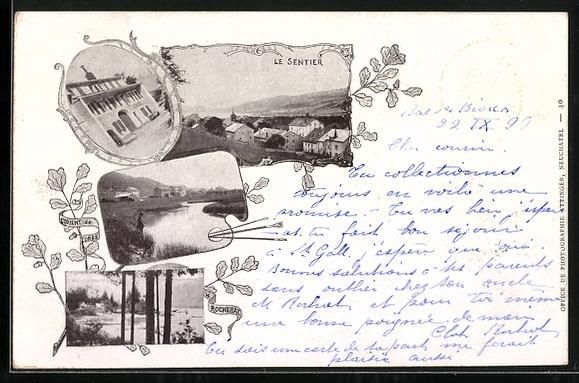 LE SENTIER
ORIENT de
L'ORBE
ROCHERAY
OFFICE DE PHOTOGRAPHIE ATTINGER, NEUCHATEL — 40
22 IX 99
Cher cousin.
Tu collectionnes
toujours en voilà une
promise. - Tu vas bien j'espère
et tu fait bon séjour
à St Gall, j'espère que oui.
Bonnes salutations à tes parents
sans oublier chez ton oncle
M et pour toi même
une bonne poignée de main
Tu sais une carte de ta part me ferait
plaisir aussi